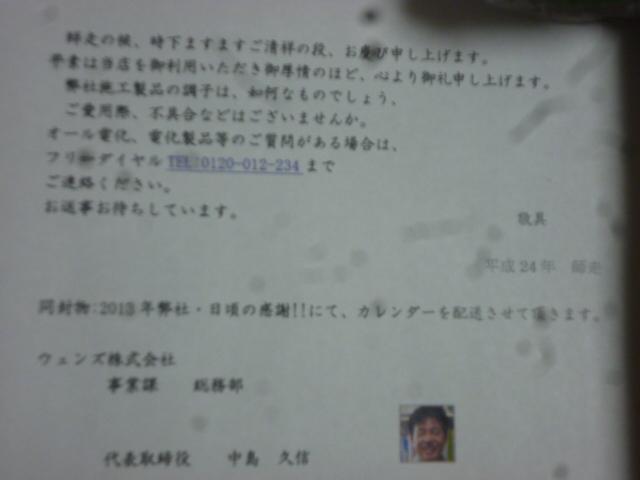 師走の候、時下ますますご清祥の段、お慶び申し上げます。
平素は当店を御利用いただき御厚情のほど、心より御礼申し上げます。
弊社施工製品の調子は、如何なものでしょう、
ご愛用際、不具合などはございませんか。
オール電化、電化製品等のご質問がある場合は、
フリーダイヤル TEL:0120-012-234 まで
ご連絡ください。
お返事お待ちしています。
敬具
平成24年 師走
同封物:2013年弊社・日頃の感謝!!にて、カレンダーを配送させて頂きます。
ウェンズ株式会社
事業課 総務部
代表取締役 中島 久信